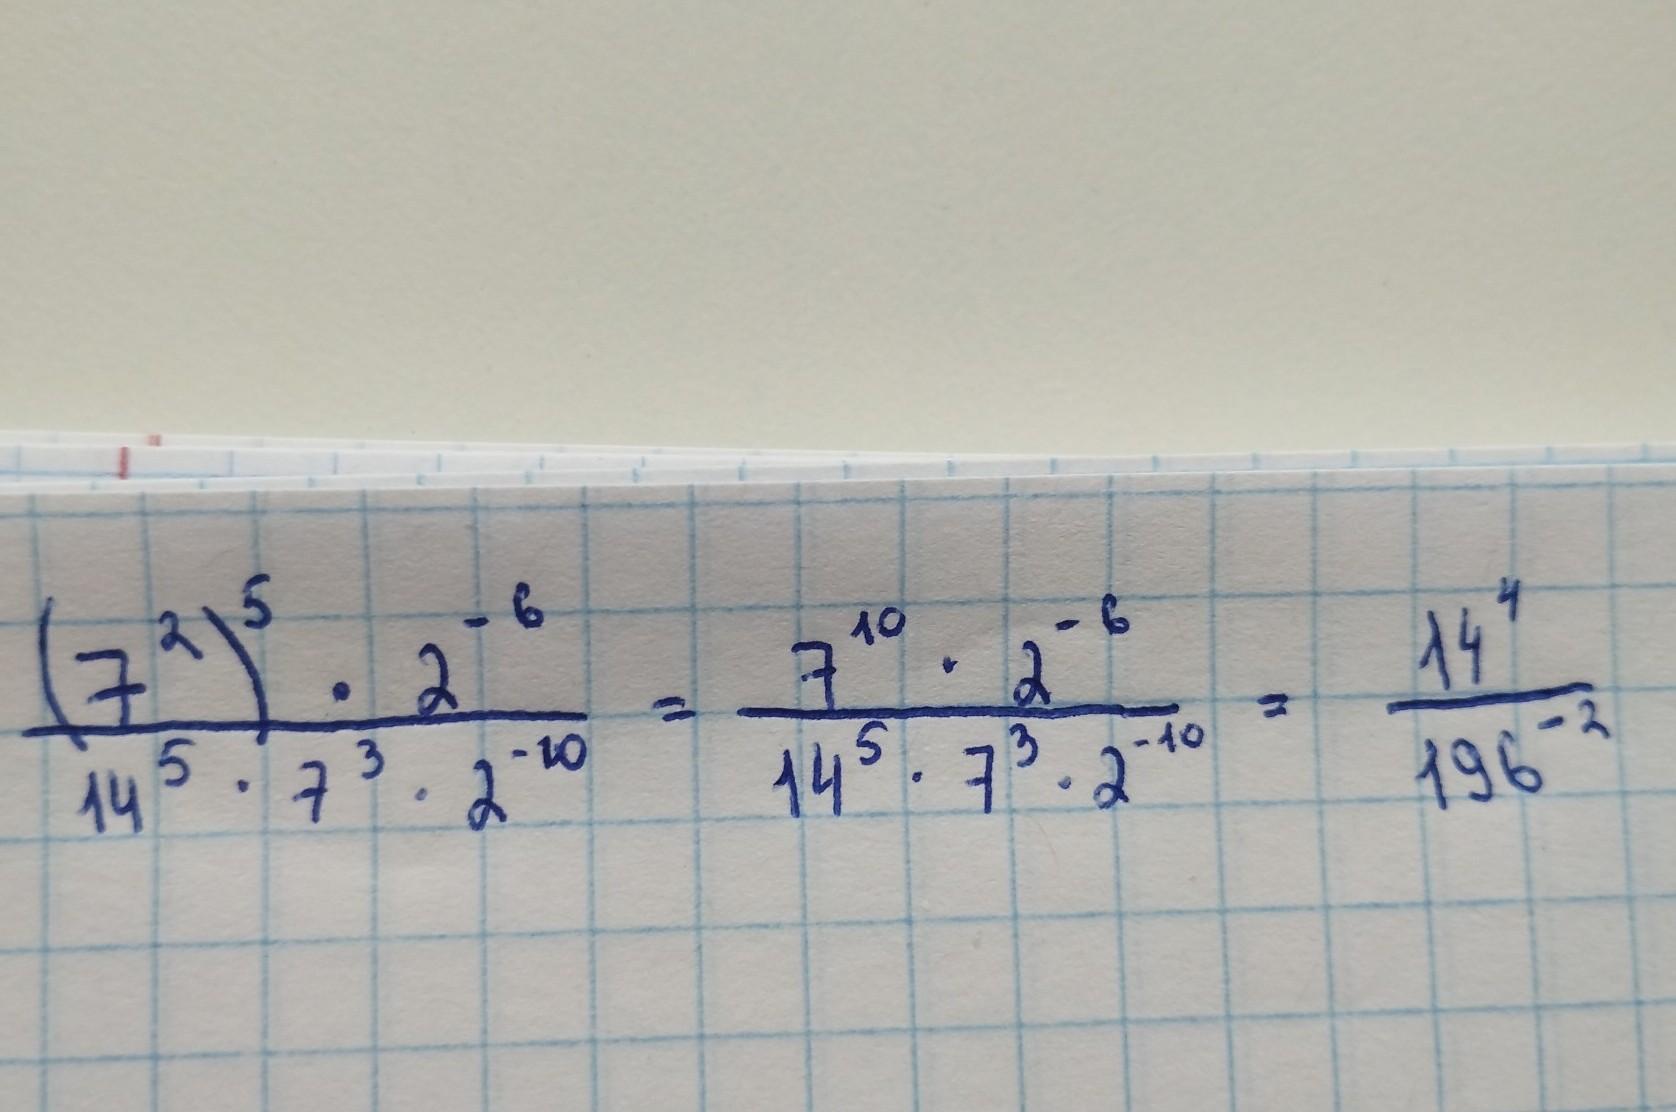 (7²)⁵ · 2⁻⁶ / 14⁵ · 7³ · 2⁻¹⁰ = 7¹⁰ · 2⁻⁶ / 14⁵ · 7³ · 2⁻¹⁰ = 14⁴ / 196⁻²